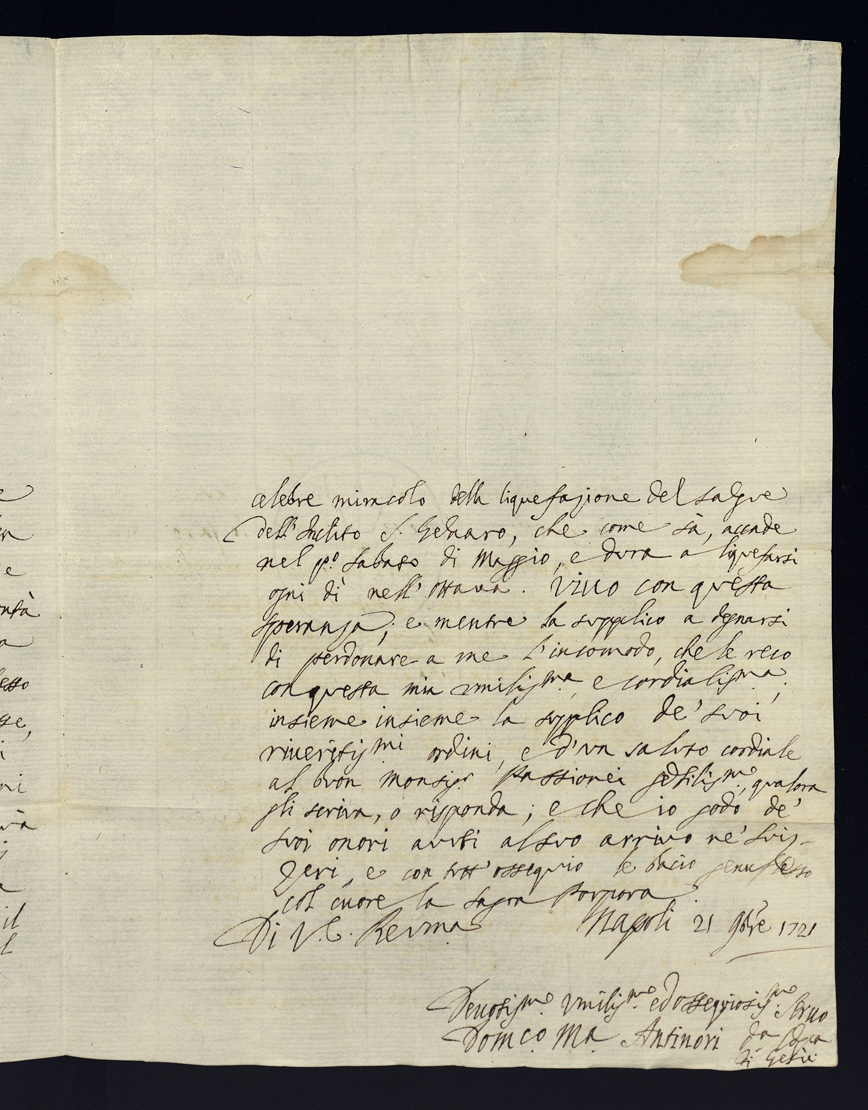 celebre miracolo della liquefazione del sangue
dell'Inclito S. Genaro, che come sà, accade
nel po. sabato di Maggio, e dura a liquefarsi
ogni dì nell'ottava. Vivo con questa
speranza, e mentre la supplico a degnarsi
di perdonare a me l'incomodo, che le reco
con questa mia umilissma, e cordialissma,
insieme insieme la supplico de' suoi
riveritissmi ordini, e d'un saluto cordiale
al buon Monsigr Passionei gentilissmo, qualora
gli scriva, o risponda; e che io godo de'
suoi onori avuti al suo arrivo ne' Sviz-
zeri, e con tutt'ossequio le bacio genuflesso
col cuore la sagra Porpora
Di V. E. Revma Napoli 21 9bre 1721
Devotissmo Umilissmo ed ossequiosissmo Servo
Domco Ma Antinori da
di Gesù
ntà
a
esso
sse,
i
ni
a
il